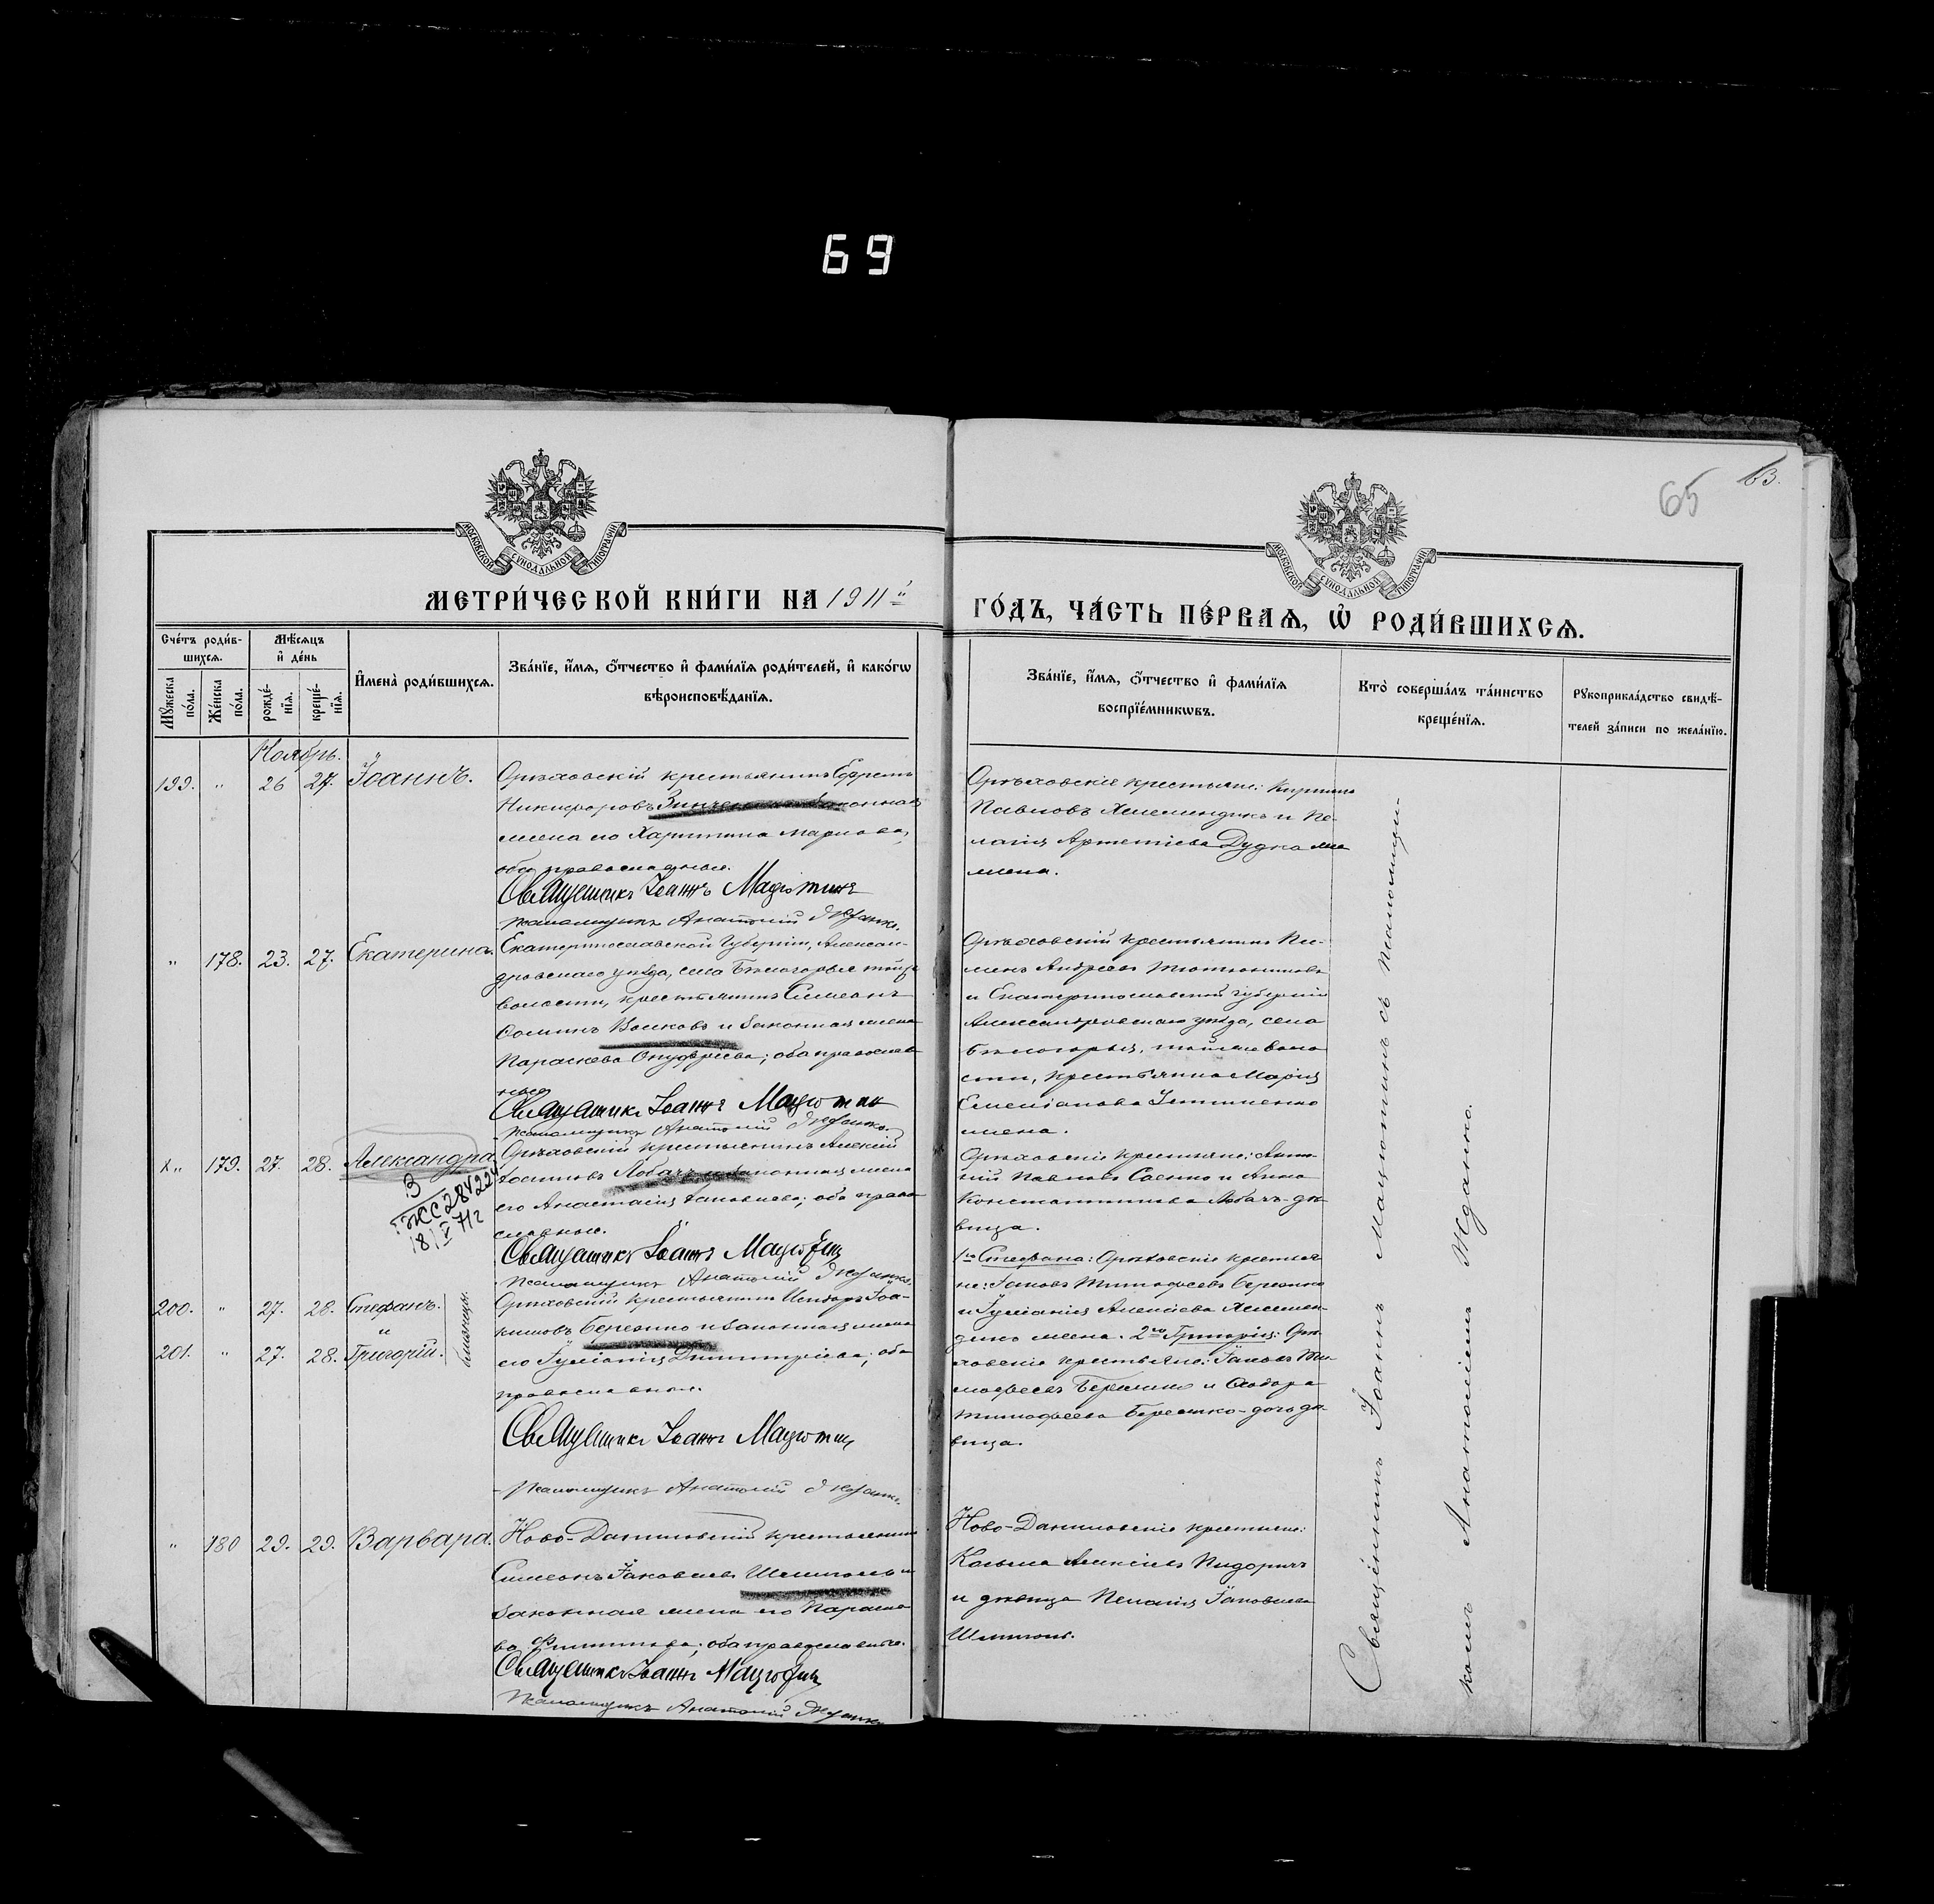 69
65
63.
МОСКОВСКОЙ СУНОДАЛЬНОЙ ТИПОГРАФИИ
МОСКОВСКОЙ СУНОДАЛЬНОЙ ТИПОГРАФИИ
МЕТРИ́ЧЕСКОЙ КНИ́ГИ НА 1911й
ГО́ДЪ, ЧА́СТЬ ПЕ́РВАѦ, Ѡ҆ РОДИ́ВШИХСѦ.
Сче́тъ роди́в-
шихсѧ.
Мѣ́сѧцъ
и҆ де́нь
Мꙋ́жеска по́ла.
Же́нска по́ла.
рожде́-
нїѧ.
креще́-
нїѧ.
И҆мена̀ роди́вшихсѧ.
Зва́нїе, и҆́мѧ, ѻ҆́тчество и҆ фами́лїѧ роди́телей, и҆ како́гѡ
вѣроисповѣ́данїѧ.
Зва́нїе, и҆́мѧ, ѻ҆́тчество и҆ фами́лїѧ
воспрїе́мникѡвъ.
Кто̀ соверша́лъ та́инство
креще́нїѧ.
Рꙋкоприкла́дство свидѣ́-
телей за́писи по жела́нїю.
Ноябрь.
199. " 26 27. Іоаннъ.
Орѣховскій крестьянинъ Ефремъ
Никифоровъ законная
жена его Харитина Маркова,
оба православные.
Священникъ Іоаннъ Мацютинъ
Псаломщикъ Анатолій Жданко.
Орѣховскіе крестьяне: Кирилъ
Павловъ и Пе-
лагія Артеміева Дудка
жена.
" 178. 23. 27. Екатерина.
Екатеринославской губерніи, Алексан-
дровскаго уѣзда, села Бѣлогорья той же
волости, крестьянинъ Симеонъ
Волковъ и законная жена
Параскева Онуфріева; оба православ-
ные
Священникъ Іоаннъ Мацютинъ
Псаломщикъ Анатолій Жданко.
Орѣховскій крестьянинъ Пи-
менъ Андреевъ
и Екатеринославской губерніи
Александровскаго уѣзда, села
Бѣлогорья, той же воло-
сти, крестьянка Марія
Емеліанова
жена.
" 179. 27. 28. Александра.
З
ЖС 284224
18/V 71г
Орѣховскій крестьянинъ Алексій
Лобачъ и законная жена
его Анастасія Іаковлева; оба право-
славные.
Священникъ Іоаннъ Мацютинъ
Псаломщикъ Анатолій Жданко.
Орѣховскіе крестьяне: Анто-
ній Павловъ Саенко и Анна
Константинова Лобачъ-дѣ-
вица.
200. " 27. 28. Стефанъ.
201. " 27. 28. Григорій.
близнецы.
Орѣховскій крестьянинъ Исидоръ Іоа-
кимовъ Бережко и законная жена
его Іуліанія Димитріева; оба
православные.
Священникъ Іоаннъ Мацютинъ
Псаломщикъ Анатолій Жданко.
1го Стефана: Орѣховскіе крестья-
не: Іаковъ Тимофеевъ Бережко
и Іуліанія Алексіева
жена. 2го Григорія: Орѣ-
ховскіе крестьяне: Іаковъ Ти-
мофеевъ Бережко и Ѳеодора
Тимофеева Бережко-
вица.
" 180 29. 29. Варвара.
Ново-Даниловскій крестьянинъ
Симеонъ Іаковлевъ и
законная жена его Параске-
ва Филиппова; оба православные.
Священникъ Іоаннъ Мацютинъ
Псаломщикъ Анатолій Жданко
Ново-Даниловскіе крестьяне:
Косьма Алексіевъ
и дѣвица Пелагія Іаковлева
Священникъ Іоаннъ Мацютинъ съ псаломщи-
комъ Анатоліемъ Жданко.